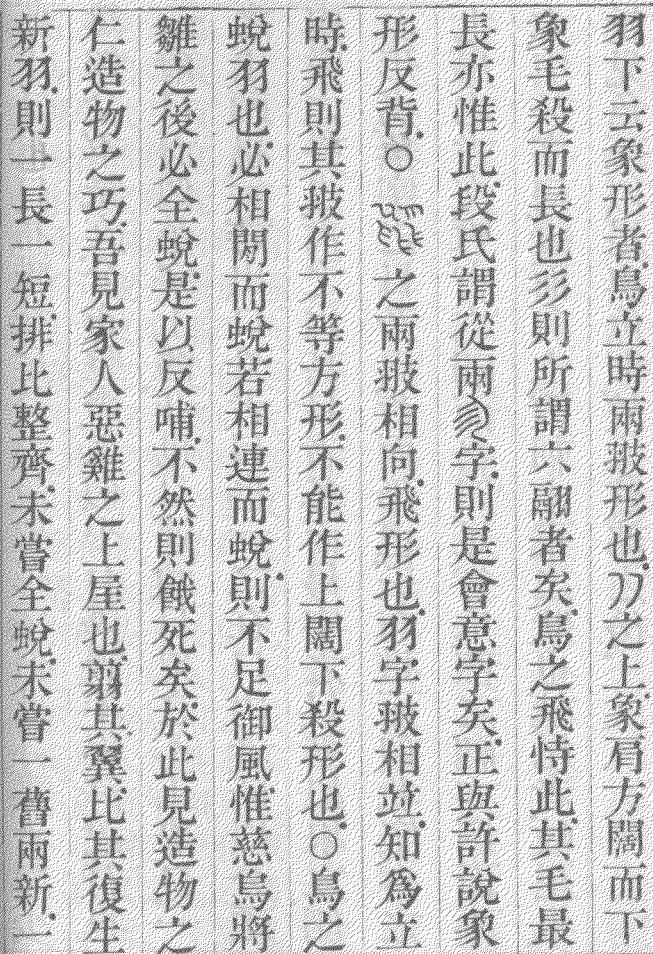 羽下云象形者鳥立時兩翄形也⺄⺄之上象肩方闊而下
象毛殺而長也彡則所謂六翮者矣鳥之飛恃此其毛最
長亦惟此段氏謂從兩字則是會意字矣正與許說象
形反背○之兩翄相向飛形也羽字翄相竝知為立
時飛則其翄作不等方形不能作上闊下殺形也○鳥之
蛻羽也必相閒而蛻若相連而蛻則不足御風惟慈烏將
雛之後必全蛻是以反哺不然則餓死矣於此見造物之
仁造物之巧吾見家人惡雞之上屋也翦其翼比其復生
新羽則一長一短排比整齊未嘗全蛻未嘗一舊兩新一